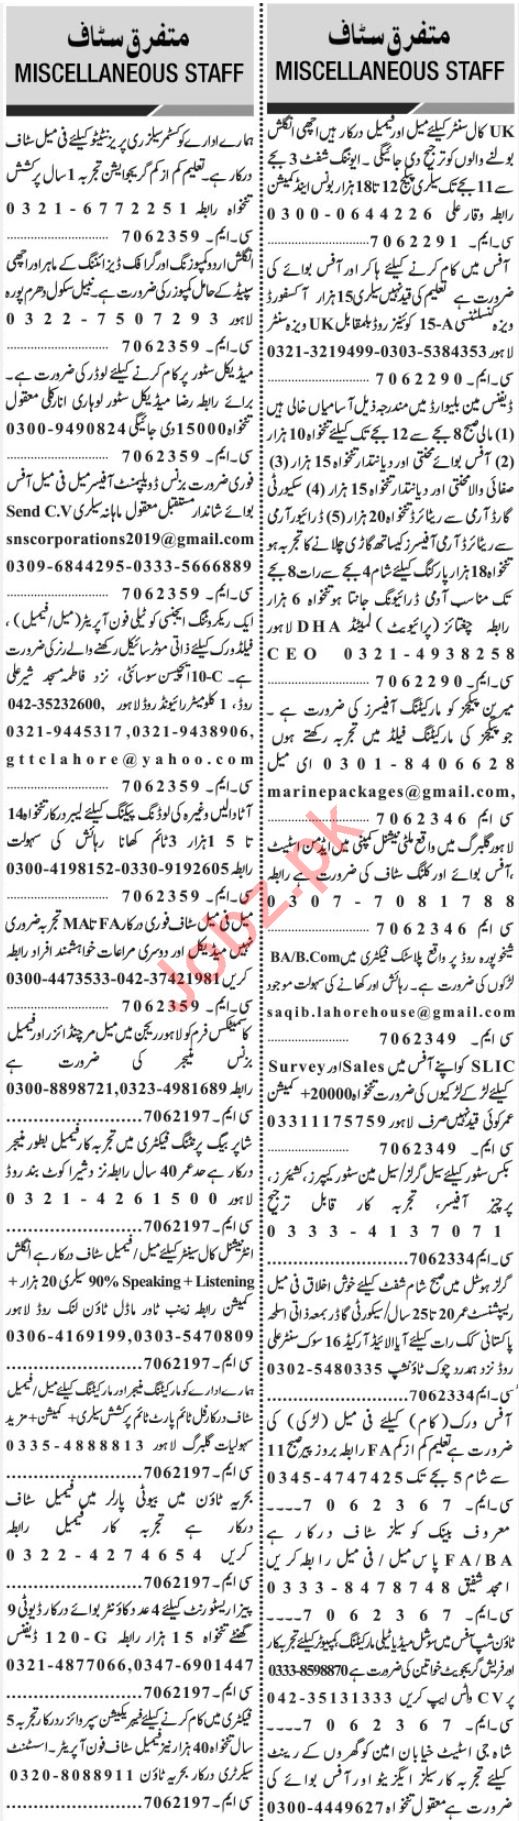 متفرق سٹاف
MISCELLANEOUS STAFF
UK کال سنٹر کیلئے میل اور فیمیل درکار ہیں اچھی انگلش
بولنے والوں کو ترجیح دی جائیگی۔ ایوننگ شفٹ 3 بجے
سے 11 بجے تک سیلری پیکج 12 تا 18 ہزار بونس اینڈ کمیشن
رابطہ وقار علی 0300-0644226
سی۔ایم۔ 7062291
آفس میں کام کرنے کیلئے ہاکر اور آفس بوائے کی
ضرورت ہے تعلیم کی قید نہیں سیلری 15 ہزار آکسفورڈ
ویزہ کنسلٹنسی 15-A کوئینز روڈ بلمقابل UK ویزہ سنٹر
لاہور 0321-3219499-0303-5384353
سی۔ایم۔ 7062290
ڈیفنس مین بلیوارڈ میں مندرجہ ذیل آسامیاں خالی ہیں
(1) مالی صبح 8 بجے سے 12 بجے تک کیلئے تنخواہ 10 ہزار
(2) آفس بوائے محنتی اور دیانتدار تنخواہ 15 ہزار (3)
صفائی والا محنتی اور دیانتدار تنخواہ 15 ہزار (4) سکیورٹی
گارڈ آرمی سے ریٹائرڈ تنخواہ 20 ہزار (5) ڈرائیور آرمی
سے ریٹائرڈ آرمی آفیسرز کیساتھ گاڑی چلانے کا تجربہ ہو
تنخواہ 18 ہزار پارکنگ کیلئے شام 4 بجے سے رات 8 بجے
تک مناسب آدمی ڈرائیونگ جانتا ہو تنخواہ 6 ہزار
رابطہ چغتائز (پرائیویٹ) لمیٹڈ DHA لاہور
CEO 0321-4938258
سی۔ایم۔ 7062290
میرین پیکجز کو مارکیٹنگ آفیسرز کی ضرورت ہے۔
جو پیکجز کی مارکیٹنگ فیلڈ میں تجربہ رکھتے ہوں
0301-8406628 ای میل
marinepackages@gmail.com,
سی ایم 7062346
لاہور گلبرگ میں واقع ملٹی نیشنل کمپنی میں ایڈمن اسٹیٹ
،آفس بوائے اور کلنگ سٹاف کی ضرورت ہے رابطہ
0307-7081788
سی ایم 7062346
شیخوپورہ روڈ پر واقع پلاسٹک فیکٹری میں BA/B.Com
لڑکوں کی ضرورت ہے۔ رہائش اور کھانے کی سہولت موجود
saqib.lahorehouse@gmail.com
سی ایم۔ 7062349
SLIC کو اپنے آفس میں Sales اور Survey
کیلئے لڑکے لڑکیوں کی ضرورت تنخواہ 20000+ کمیشن
عمر کوئی قید نہیں صرف لاہور 03311175759
سی ایم۔ 7062349
بکس سٹور کیلئے سیل گرلز/ سیل مین سٹور کیپرز، کیشیئرز،
پرچیز آفیسر، تجربہ کار قابل ترجیح
0333-4137071
سی۔ایم 7062334
گرلز ہوسٹل میں صبح شام شفٹ کیلئے خوش اخلاق فی میل
ریسپشنسٹ عمر 20 تا 25 سال/ سکیورٹی گارڈ بمعہ ذاتی اسلحہ
پاکستانی کک رات کیلئے آیا الائیڈ آرکیڈ 16 سوک سنٹر علی
روڈ نزد ہمدرد چوک ٹاؤن شپ 0302-5480335
سی۔ایم 7062334
آفس ورک (کام) کیلئے فی میل (لڑکی) کی
ضرورت ہے تعلیم کم از کم FA رابطہ بروز پیر صبح 11
سے شام 5 بجے تک 0345-4747425
سی۔ایم۔ 7062367
معروف بینک کو سیلز سٹاف درکار ہے
FA/BA پاس میل/ فی میل رابطہ کریں
امجد شفیق 0333-8478748
سی۔ایم۔ 7062367
ٹاؤن شپ آفس میں سوشل میڈیا ٹیلی مارکیٹنگ کمپیوٹر کیلئے تجربہ کار
اور فریش گریجویٹ خواتین کی ضرورت ہے 0333-8598870
پر CV واٹس ایپ کریں 042-35131333
سی۔ایم۔ 7062367
شاہ جی اسٹیٹ خیابان امین کو گھروں کے رینٹ
کیلئے تجربہ کار سیلز ایگزیٹو اور آفس بوائے کی
ضرورت ہے معقول تنخواہ 0300-4449627
متفرق سٹاف
MISCELLANEOUS STAFF
ہمارے ادارے کو کسٹمر سیلز ری پریزنٹیٹو کیلئے فی میل سٹاف
درکار ہے۔ تعلیم کم از کم گریجوایشن تجربہ 1 سال پرکشش
تنخواہ رابطہ 0321-6772251
سی۔ایم۔ 7062359
انگلش اردو کمپوزنگ اور گرافک ڈیزائننگ کے ماہر اور اچھی
سپیڈ کے حامل کمپوزر کی ضرورت ہے۔ نبیل سکول دھرم پورہ
لاہور 0322-7507293
سی۔ایم۔ 7062359
میڈیکل سٹور پر کام کرنے کیلئے لوڈر کی ضرورت ہے۔
برائے رابطہ رضا میڈیکل سٹور لوہاری انارکلی معقول
تنخواہ 15000 دی جائیگی 0300-9490824
سی۔ایم۔ 7062359
فوری ضرورت بزنس ڈویلپمنٹ آفیسر میل فی میل آفس
بوائے شاندار مستقبل معقول ماہانہ سیلری Send C.V
snscorporations2019@gmail.com
0309-6844295-0333-5666889
سی۔ایم۔ 7062359
ایک ریکروٹنگ ایجنسی کو ٹیلی فون آپریٹر (میل/ فیمیل)،
فیلڈ ورک کیلئے ذاتی موٹر سائیکل رکھنے والے رنر کی ضرورت
ہے۔ 10-C ایچیسن سوسائٹی، نزد فاطمہ مسجد شیر علی
روڈ، 1 کلومیٹر رائیونڈ روڈ لاہور 042-35232600,
0321-9445317,0321-9438906,
gttclahore@yahoo.com
سی۔ایم۔ 7062359
آٹا دالیں وغیرہ کی لوڈنگ پیکنگ کیلئے لیبر درکار تنخواہ 14
تا 15 ہزار 3 ٹائم کھانا رہائش کی سہولت
رابطہ 0300-4198152-0330-9192605
سی۔ایم۔ 7062359
میل فی میل سٹاف فوری درکار FA تا MA تجربہ ضروری
نہیں میڈیکل اور دوسری مراعات خواہشمند افراد رابطہ
کریں 0300-4473533-042-37421981
سی۔ایم۔ 7062359
کاسمیٹکس فرم کو لاہور ریجن میں میل مرچنڈائزر اور فیمیل
بزنس منیجر کی ضرورت ہے
رابطہ 0300-8898721,0323-4981689
سی ایم۔ 7062197
شاپر بیگ پرنٹنگ فیکٹری میں تجربہ کار فیمیل بطور منیجر
درکار ہے حد عمر 40 سال رابطہ نزد شیراکوٹ بند روڈ
لاہور 0321-4261500
سی ایم۔ 7062197
انٹرنیشنل کال سینٹر کیلئے میل/ فیمیل سٹاف درکار ہے انگلش
90% Speaking + Listening سیلری 20 ہزار +
کمیشن رابطہ زینب ٹاور ماڈل ٹاؤن لنک روڈ لاہور
0306-4169199,0303-5470809
سی ایم۔ 7062197
ہمارے ادارے کو مارکیٹنگ منیجر اور مارکیٹنگ کیلئے میل/ فیمیل
سٹاف درکار فل ٹائم پارٹ ٹائم پرکشش سیلری + کمیشن + مزید
سہولیات گلبرگ لاہور 0335-4888813
سی ایم۔ 7062197
بحریہ ٹاؤن میں بیوٹی پارلر میں فیمیل سٹاف
درکار ہے تجربہ کار فیمیل رابطہ
کریں 0322-4274654
سی ایم۔ 7062197
پیزا ریسٹورنٹ کیلئے 4 عدد کاؤنٹر بوائے درکار ڈیوٹی 9
گھنٹے تنخواہ 15 ہزار رابطہ 120-G ڈیفنس
0321-4877066,0347-6901447
سی ایم۔ 7062197
فیکٹری میں کام کرنے کیلئے فیبریکیشن سپروائزر درکار تجربہ 5
سال تنخواہ 40 ہزار نیز فیمیل سٹاف فون آپریٹر۔ اسسٹنٹ
سیکرٹری درکار بحریہ ٹاؤن 0320-8088911
سی ایم۔ 7062197
Jobz.pk